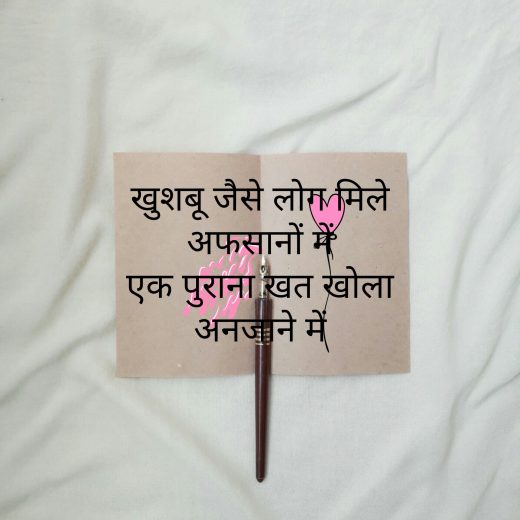 खुशबू जैसे लोग मिले
अफसानों में
एक पुराना खत खोला
अनजाने में